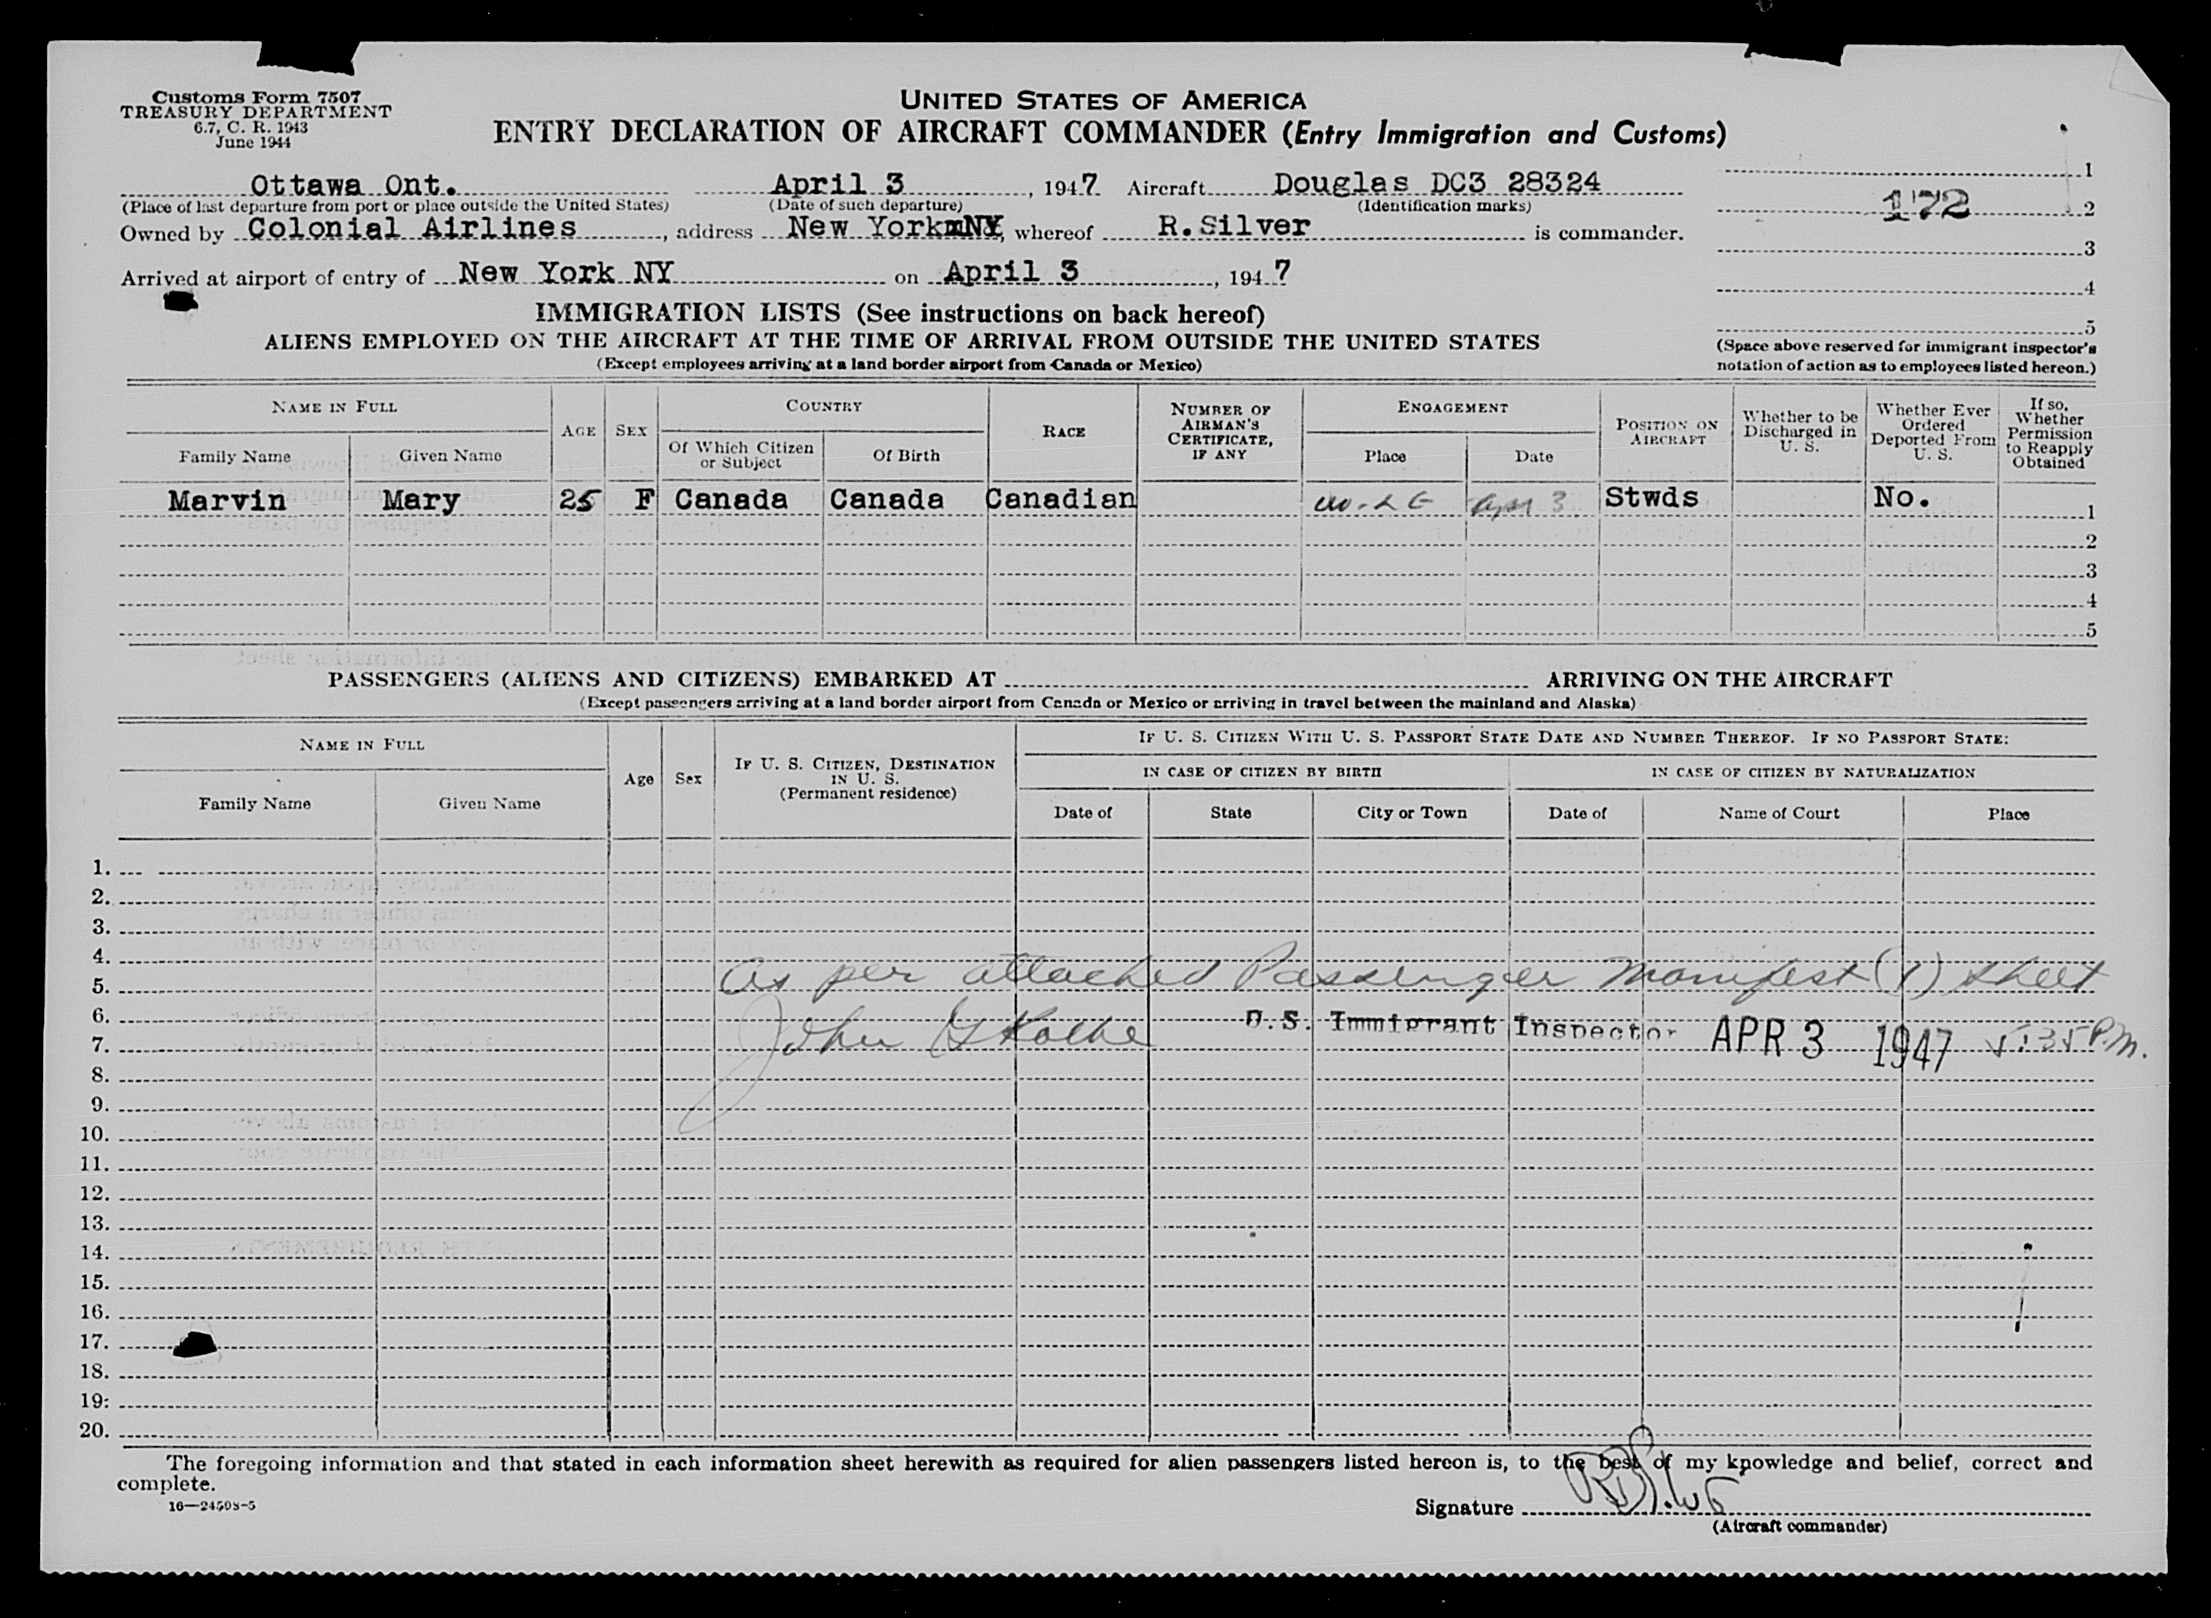 Customs Form 7507
TREASURY DEPARTMENT
6.7, C. R. 1943
June 1944
UNITED STATES OF AMERICA
ENTRY DECLARATION OF AIRCRAFT COMMANDER (Entry Immigration and Customs)
Ottawa Ont. April 3, 1947 Aircraft Douglas DC3 28324
(Place of last departure from port or place outside the United States) (Date of such departure) (Identification marks)
Owned by Colonial Airlines, address New York NY, whereof R.Silver is commander.
Arrived at airport of entry of New York NY on April 3, 1947
1
172 2
3
4
5
(Space above reserved for immigrant inspector's
notation of action as to employees listed hereon.)
IMMIGRATION LISTS (See instructions on back hereof)
ALIENS EMPLOYED ON THE AIRCRAFT AT THE TIME OF ARRIVAL FROM OUTSIDE THE UNITED STATES
(Except employees arriving at a land border airport from Canada or Mexico)
NAME IN FULL
Family Name
Given Name
AGE
SEX
COUNTRY
Of Which Citizen or Subject
Of Birth
RACE
NUMBER OF AIRMAN'S CERTIFICATE, IF ANY
ENGAGEMENT
Place
Date
POSITION ON AIRCRAFT
Whether to be Discharged in U. S.
Whether Ever Ordered Deported From U. S.
If so, Whether Permission to Reapply Obtained
Marvin Mary 25 F Canada Canada Canadian Apr 3 Stwds No. 1
2
3
4
5
PASSENGERS (ALIENS AND CITIZENS) EMBARKED AT ARRIVING ON THE AIRCRAFT
(Except passengers arriving at a land border airport from Canada or Mexico or arriving in travel between the mainland and Alaska)
NAME IN FULL
Family Name
Given Name
Age
Sex
IF U. S. CITIZEN, DESTINATION IN U. S.
(Permanent residence)
IF U. S. CITIZEN WITH U. S. PASSPORT STATE DATE AND NUMBER THEREOF. IF NO PASSPORT STATE:
IN CASE OF CITIZEN BY BIRTH
IN CASE OF CITIZEN BY NATURALIZATION
Date of
State
City or Town
Date of
Name of Court
Place
1.
2.
3.
4.
5. As per attached Passenger Manifest (1) sheet
6. U.S. Immigrant Inspector APR 3 1947 5:35 P.M.
7. John
8.
9.
10.
11.
12.
13.
14.
15.
16.
17.
18.
19.
20.
The foregoing information and that stated in each information sheet herewith as required for alien passengers listed hereon is, to the best of my knowledge and belief, correct and
complete.
16—24598-5
Signature
(Aircraft commander)